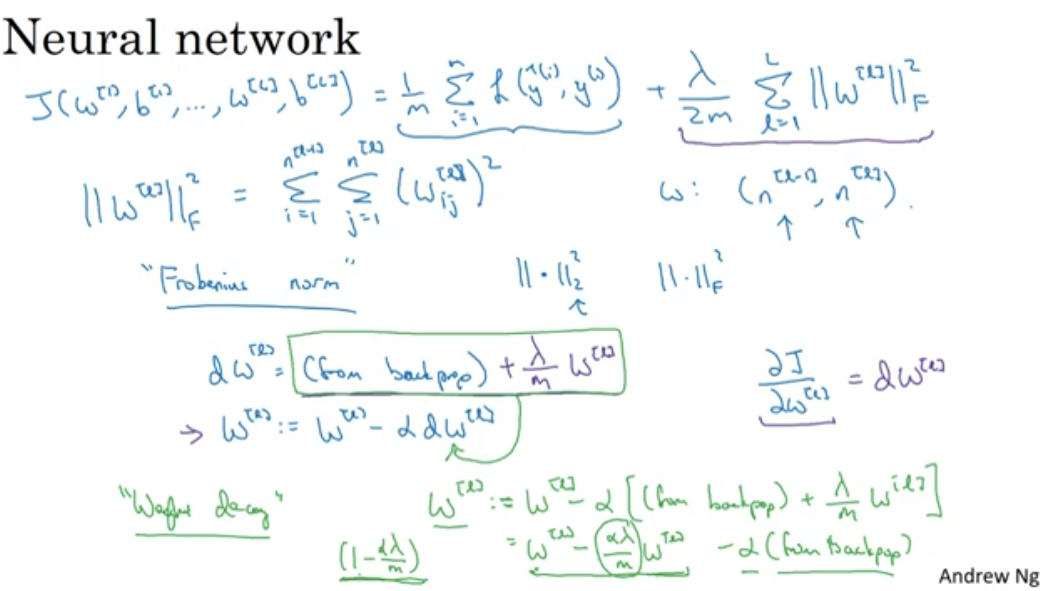 Neural network
J(w^[1], b^[1], ..., w^[L], b^[L]) = 1/m Σ_{i=1}^{n} L(ŷ^(i), y^(i)) + λ/2m Σ_{l=1}^{L} ||w^[l]||²_F
||w^[l]||²_F = Σ_{i=1}^{n^[l-1]} Σ_{j=1}^{n^[l]} (w_ij^[l])² w: (n^[l-1], n^[l]).
"Frobenius norm" ||·||²_2 ||·||²_F
dw^[l] = (from backprop) + λ/m w^[l]
∂J/∂w^[l] = dw^[l]
→ w^[l] := w^[l] - α dw^[l]
"Weight decay" w^[l] := w^[l] - α[(from backprop) + λ/m w^[l]]
(1 - αλ/m) = w^[l] - αλ/m w^[l] - α(from Backprop)
Andrew Ng